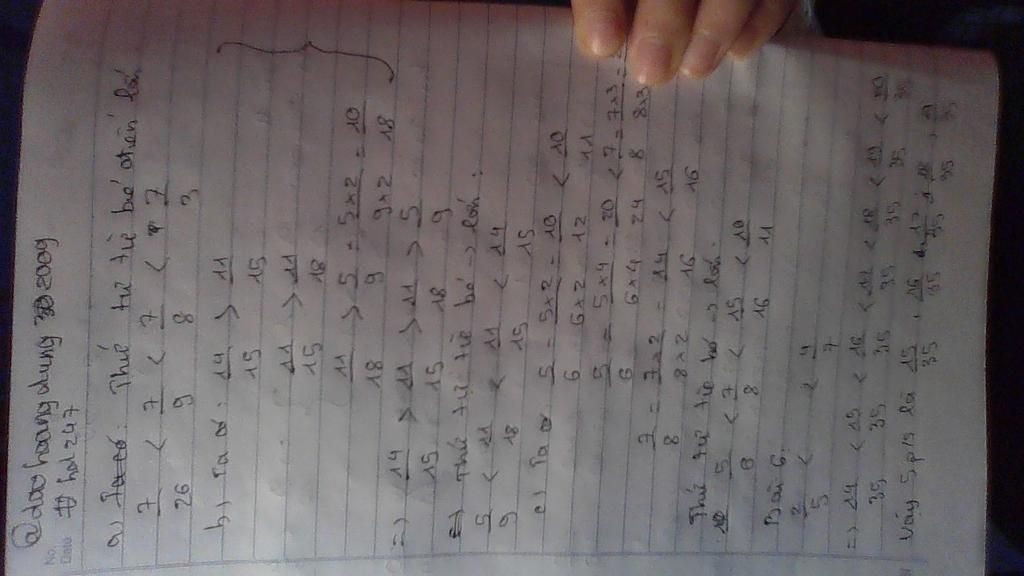 @daohoangdung 2009
# hoc247
No.
Date
a) Ta có: Thứ tự từ bé đến lớn
7/26 < 7/9 < 7/8 < 7/3
b) Ta có: 14/15 > 11/15
11/15 > 11/18
11/18 > 5/9 = 5×2/9×2 = 10/18
=> 14/15 > 11/15 > 11/18 > 5/9
=> Thứ tự từ bé -> lớn:
5/9 < 11/18 < 11/15 < 14/15
c) Ta có 5/6 = 5×2/6×2 = 10/12 < 10/11
5/6 = 5×4/6×4 = 20/24 < 7/8 = 7×3/8×3 =
7/8 = 7×2/8×2 = 14/16 < 15/16
Thứ tự từ bé -> lớn:
< 7/8 < 15/16 < 10/11
Bài 6:
2/5 < < 4/7
=> 14/35 < 15/35 < 16/35 < < 18/35 < 19/35 < 20/35
Vậy 5 p/s là 15/35, 16/35, 17/35, 18/35, 19/35